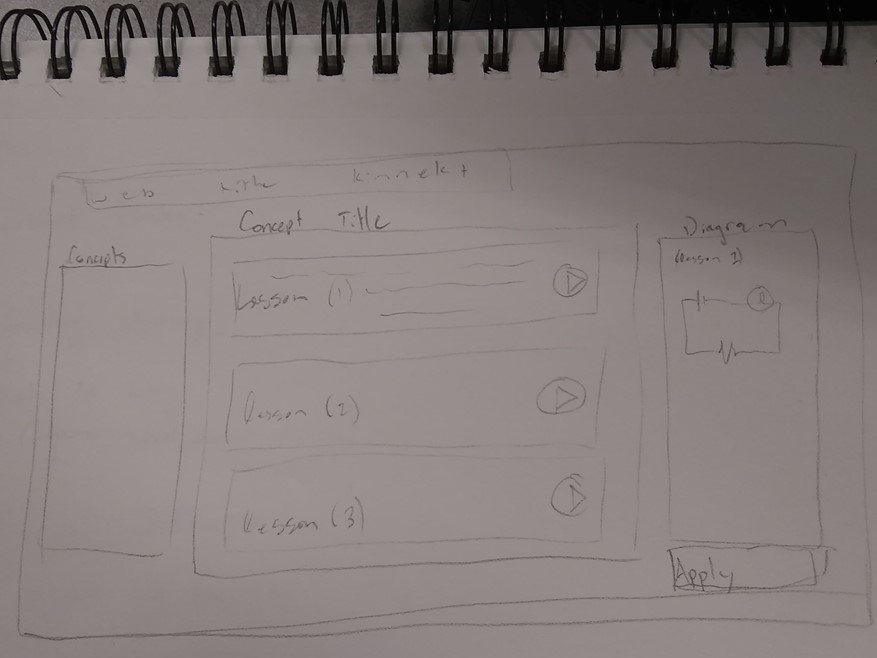 web title kinnekt
Concept Title
Concepts
Lesson (1)
Lesson (2)
Lesson (3)
Diagram
(Lesson 1)
Apply